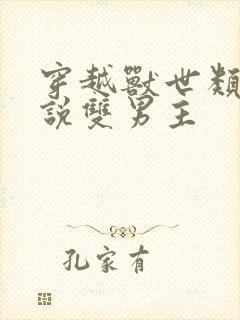 穿越獸世類
說雙男主
孔家有